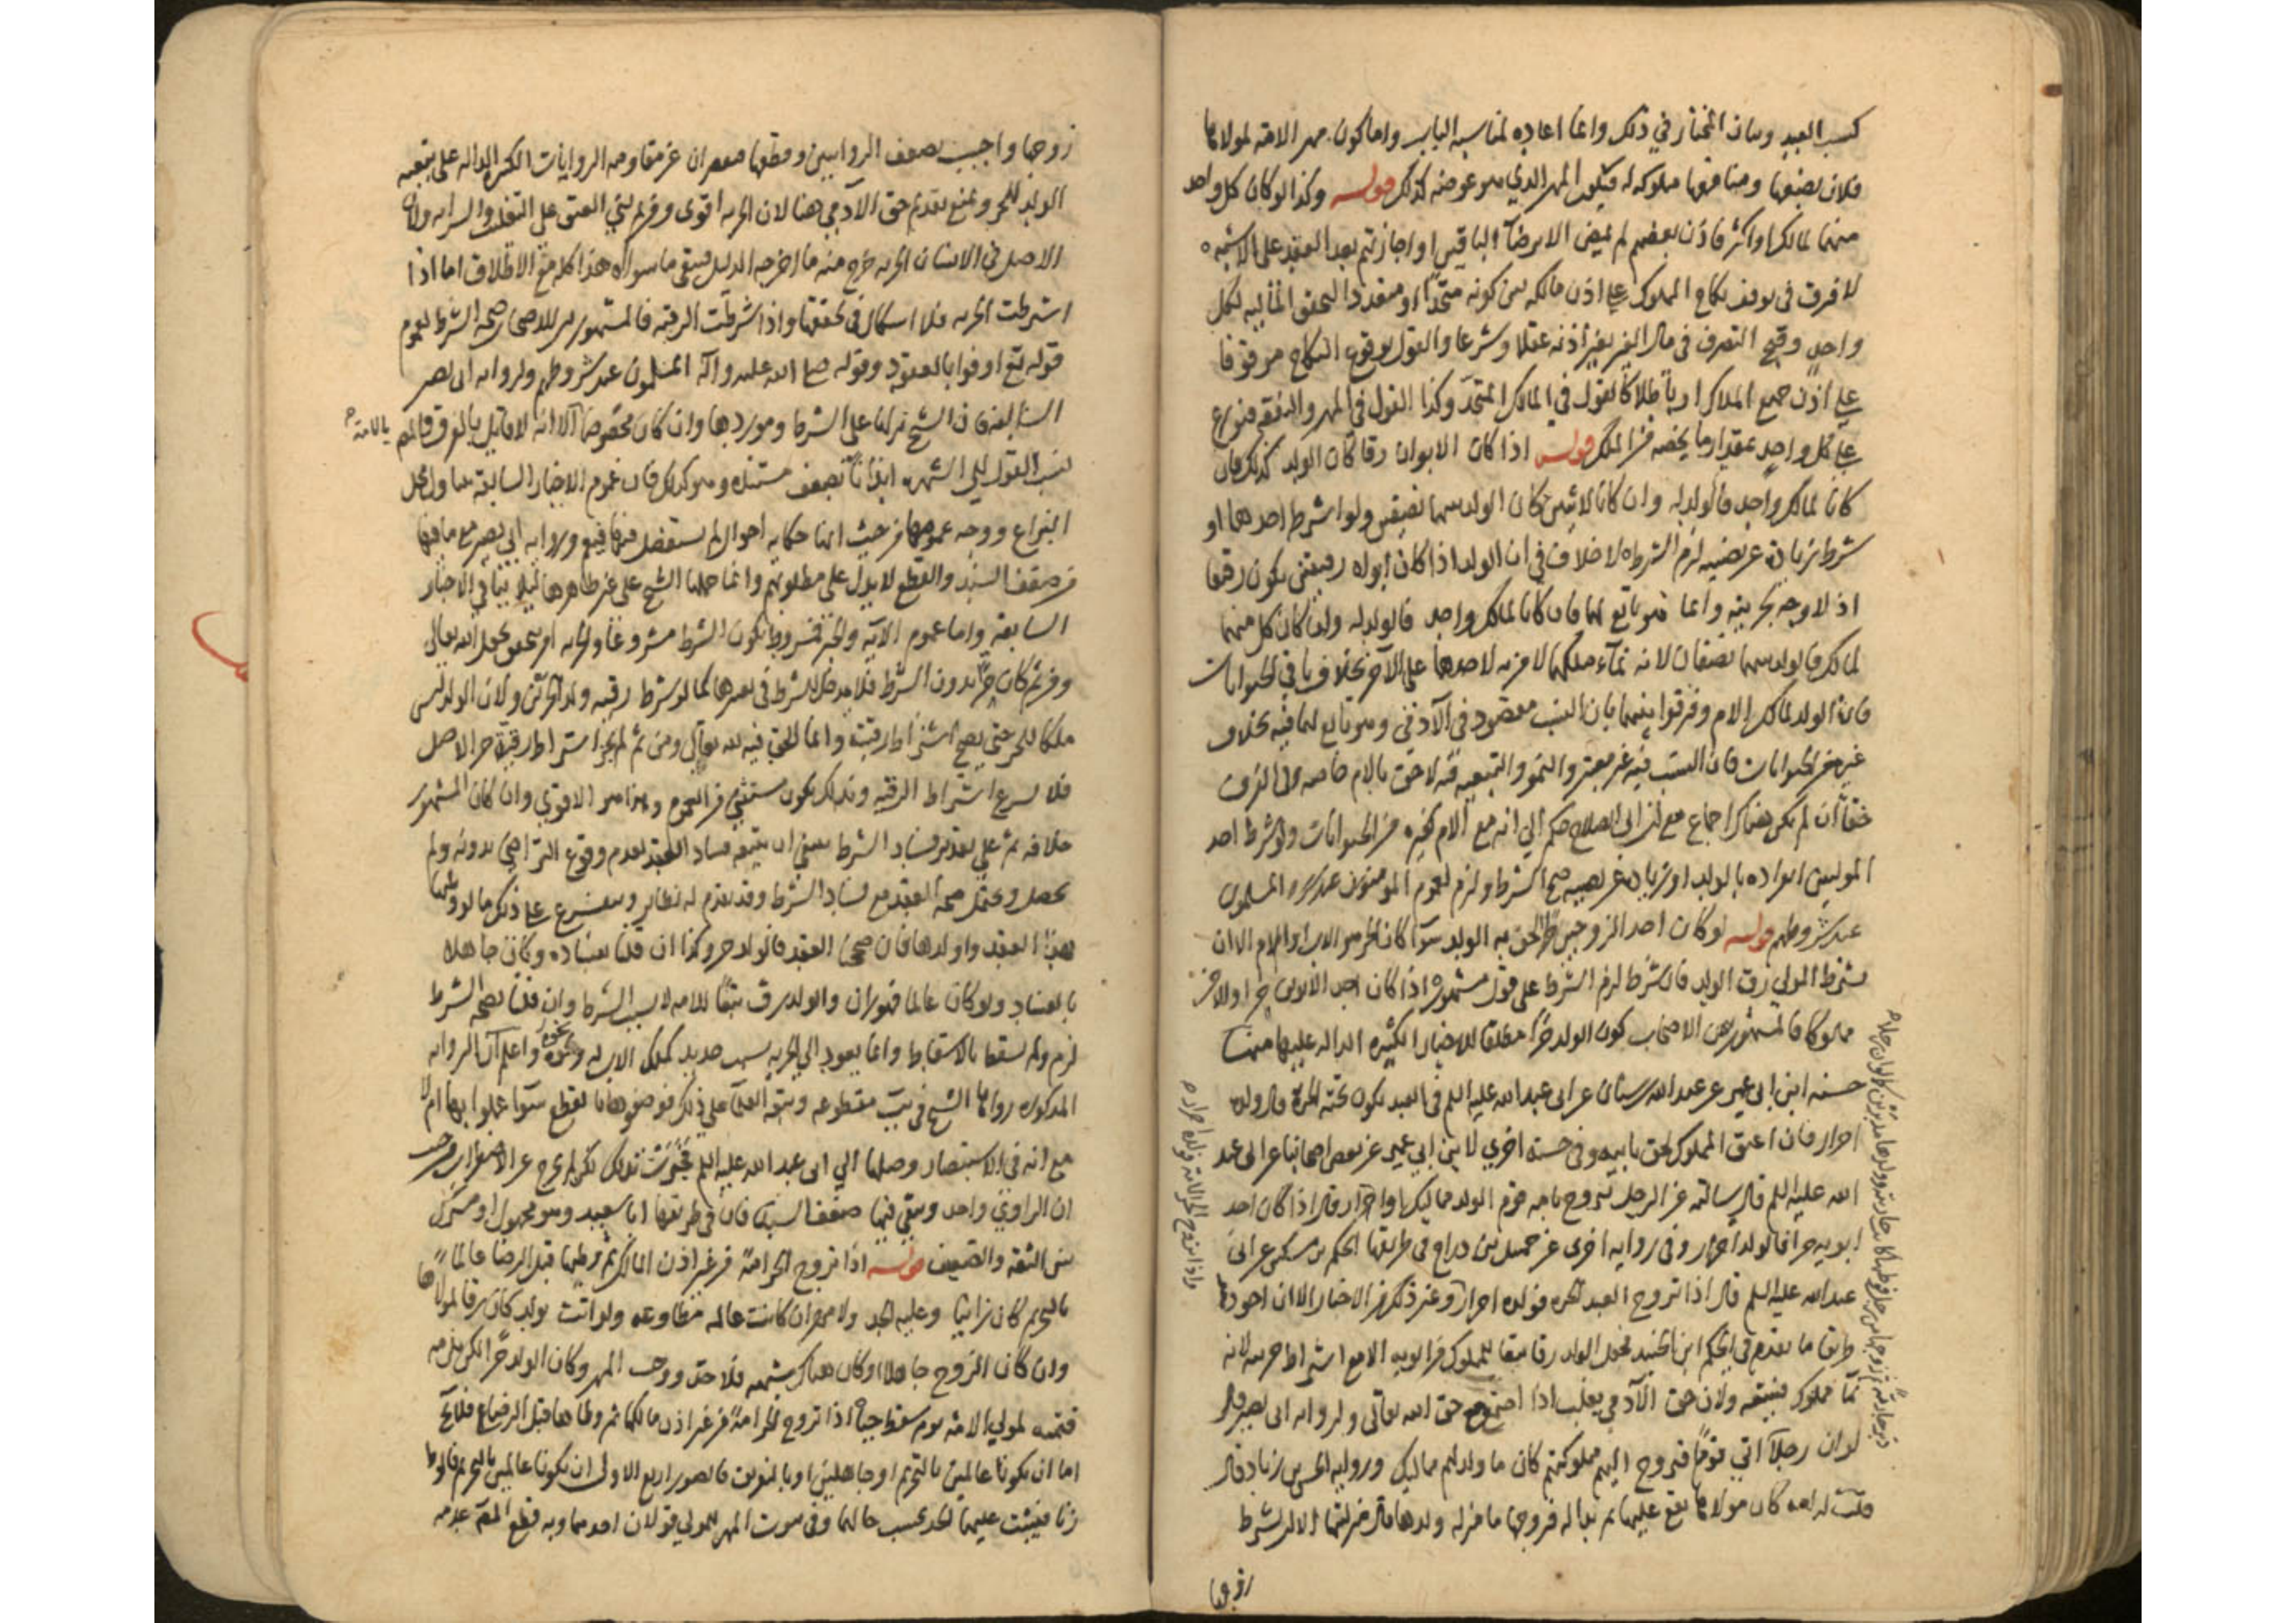 كسب العبد وبيان المختار في ذلك وانما اعاده لمناسبة الباب واما كون مهر الامة لمولاها
فلان بضعها ومنافعها مملوكه له فيكون المهر الذي هو عوضه كذلك قوله وكذا لو كان كل واحد
منهما لمالك او اكثر فاذن بعضهم لم يمض الا برضاء الباقين او اجازتهم بعد العقد على الاشبه
لا فرق في توقف نكاح المملوك على اذن مالكه بين كونه متحدا او متعددا لتحقق المالكيه لكل
واحد وقبح التصرف في مال الغير بغير اذنه عقلا وشرعا والقول بوقوع النكاح موقوفا
على اذن جميع الملاك او باطلا كالقول في المالك المتحد وكذا القول في المهر والنفقه فتوزع
على كل واحد بمقدار ما يخصه من الملك قوله اذا كان الابوان رقا كان الولد كذلك فان
كانا لمالك واحد فالولد له وان كانا لاثنين كان الولد بينهما نصفين ولو اشترط احدهما او
شرط زيادة عن نصيبه لزم الشرط لا خلاف في ان الولد اذا كان ابواه رقيقين يكون رقيقا
اذ لا وجه لحريته وانما هو تابع لهما فان كانا لمالك واحد فالولد له وان كان كل منهما
لمالك فالولد بينهما نصفان لانه نماء ملكهما لا مزيه لاحدهما على الآخر بخلاف باقي الحيوانات
فان الولد لمالك الام وفرقوا بينهما بان النسب مقصود في الآدمي وهو تابع لهما فيه بخلاف
غيره من الحيوانات فان النسب فيه غير معتبر والنمو والتبعيه فيه لاحق بالام خاصه وفي الفرق
خفاء ان لم يكن هناك اجماع مع ان ابي الصلاح حكم الي انه مع الام كغيره من الحيوانات ولو شرط احد
الموليين انفراده بالولد او زيادة عن نصيبه صح الشرط ولزم لعموم المؤمنون عند شروطهم المسلمون
عند شروطهم قوله لو كان احد الزوجين حرا لحق به الولد سواء كان الحر هو الاب او الام الا ان
يشترط المولى رق الولد فان شرط لزم الشرط على قول مشهور اذا كان احد الابوين حرا والآخر
مملوكا فالمشهور بين الاصحاب كون الولد حرا مطلقا للاخبار الكثيره الداله عليها منها
حسنه ابن ابي عمير عن عبد الله بن سنان عن ابى عبد الله عليه السلم في العبد يكون تحته الحرة قال ولده
احرار فان اعتق المملوك لحق بابيه وفي حسنه اخري لابن ابي عمير عن بعض اصحابنا عن ابي عبد
الله عليه السلم قال سالته عن الرجل يتزوج بامه قوم الولد مماليك او احرار قال اذا كان احد
ابويه حرا فالولد احرار وفي روايه اخرى عن جميل بن دراج في طريقها الحكم بن مسكين عن ابي
عبد الله عليه السلم قال اذا تزوج العبد الحره فولده احرار وغير ذلك من الاخبار الا ان اجودها
طريقا ما تقدم في الحكم ابن الجنيد فجعل الولد رقا تبعا للمملوك من ابويه الا مع اشتراط حريته لانه
نماء مملوك فيتبعه ولان حق الآدمي يغلب اذا اجتمع مع حق الله تعالى ولروايه ابي بصير قال
لو ان رجلا اتي قوما فتزوج اليهم مملوكتهم كان ما ولد لهم مماليك ورواية الحسن بن زياد قال
قلت له امه كان مولاها يقع عليها ثم بدا له فزوجها ما منزله ولدها قال منزلتها الا ان يشترط
زوجها
واذا تزوج الحر الامة فولده احرار م
زوجها واجيب بضعف الروايتين وقطعهما مقصران عن مقاومه الروايات الكثيره الداله على تبعيه
الولد للحر ونمنع تقديم حق الآدمي هنا لان الحريه اقوى ومن ثم بني العتق على التغليب والسرايه ولان
الاصل في الانسان الحريه خرج منه ما اخرجه الدليل فيبقى ما سواه هذا كله مع الاطلاق اما اذا
اشترطت الحريه فلا اشكال في تحققها واذا شرطت الرقيه فالمشهور بين الاصحاب صحه الشرط لعموم
قوله تع اوفوا بالعقود وقوله صلى الله عليه وآله المسلمون عند شروطهم ولروايه ابي بصير
السالفه فان الشيخ نزلها على الشرط وموردها وان كان مخصوصا الا انه لا قائل بالفرق والمصـ
بالامة م
نسب القول الى الشهره ايذانا بضعف مستنده وهو كذلك فان عموم الاخبار السابقه يتناول محل
النزاع ووجه عمومها من حيث انها حكايه احوال لم يستفصل فيها فيعم وروايه ابي بصير مع ما فيها
من ضعف السند والقطع لا يدل على مطلوبهم وانما حملها الشيخ على غير ظاهرها لئلا ينافي الاخبار
السابقه واما عموم الآية والخبر فمشروط بكون الشرط مشروعا والحريه امر يتعلق بحق الله تعالى
ومن ثم كان حرا بدون الشرط فلا مدخل للشرط في تغييرها كما لو شرط رقيه ولد الحرتين ولان الولد ليس
ملكا للحر حتى يصح اشتراط رقيته وانما الحق فيه لله تعالى ومن ثم لم يجز اشتراط رقية حر الاصل
فلا يسوغ اشتراط الرقيه وبذلك يكون مستثني من العموم وهذا هو الاقوي وان كان المشهور
خلافه ثم على تقدير فساد الشرط ينبغي ان يتبعه فساد العقد لعدم وقوع التراضي بدونه ولم
يحصل ويحتمل صحه العقد مع فساد الشرط وقد تقدم له نظاير ويتفرع على ذلك ما لو وطئها
بهذا العقد واولدها فان صححنا العقد فالولد حر وكذا ان قلنا بفساده وكان جاهلا
بالفساد ولو كان عالما فهو زان والولد رق تبعا للامه لا بسبب الشرط وان قلنا بصحه الشرط
لزم ولم يسقط بالاسقاط وانما يعود الى الحريه بسبب جديد كملك الاب له ونحوه واعلم ان الروايه
المذكوره رواها الشيخ في يب مقطوعه وتبعه العلماء على ذلك فوصفوها بالقطع سواء عملوا بها ام لا
مع انه في الاستبصار وصلها الي ابى عبد الله عليه السلم
ان الراوي واحد وبقي فيها ضعف السند فان في طريقها ابا سعيد وهو مجهول او مشترك
بين الثقه والضعيف قوله اذا تزوج الحر امة من غير اذن المالك ثم وطئها قبل الرضا عالما
بالتحريم كان زانيا وعليه الحد ولا مهر ان كانت عالمه مطاوعه ولو اتت بولد كان رقا لمولاها
وان كان الزوج جاهلا او كان هناك شبهه فلا حد ووجب المهر وكان الولد حرا لكن يلزمه
قيمته لمولي الامة يوم سقط حيا اذا تزوج الحر امة من غير اذن مالكها ثم وطئها قبل الرضا فلا يخـ
اما ان يكونا عالمين بالتحريم او جاهلين او بالتفريق فالصور اربع الاولى ان يكونا عالمين بالتحريم فالوطـ
زنا فيثبت عليهما الحد بحسب حالهما وفي ثبوت المهر للمولي قولان احدهما وبه قطع المصـ عدمه